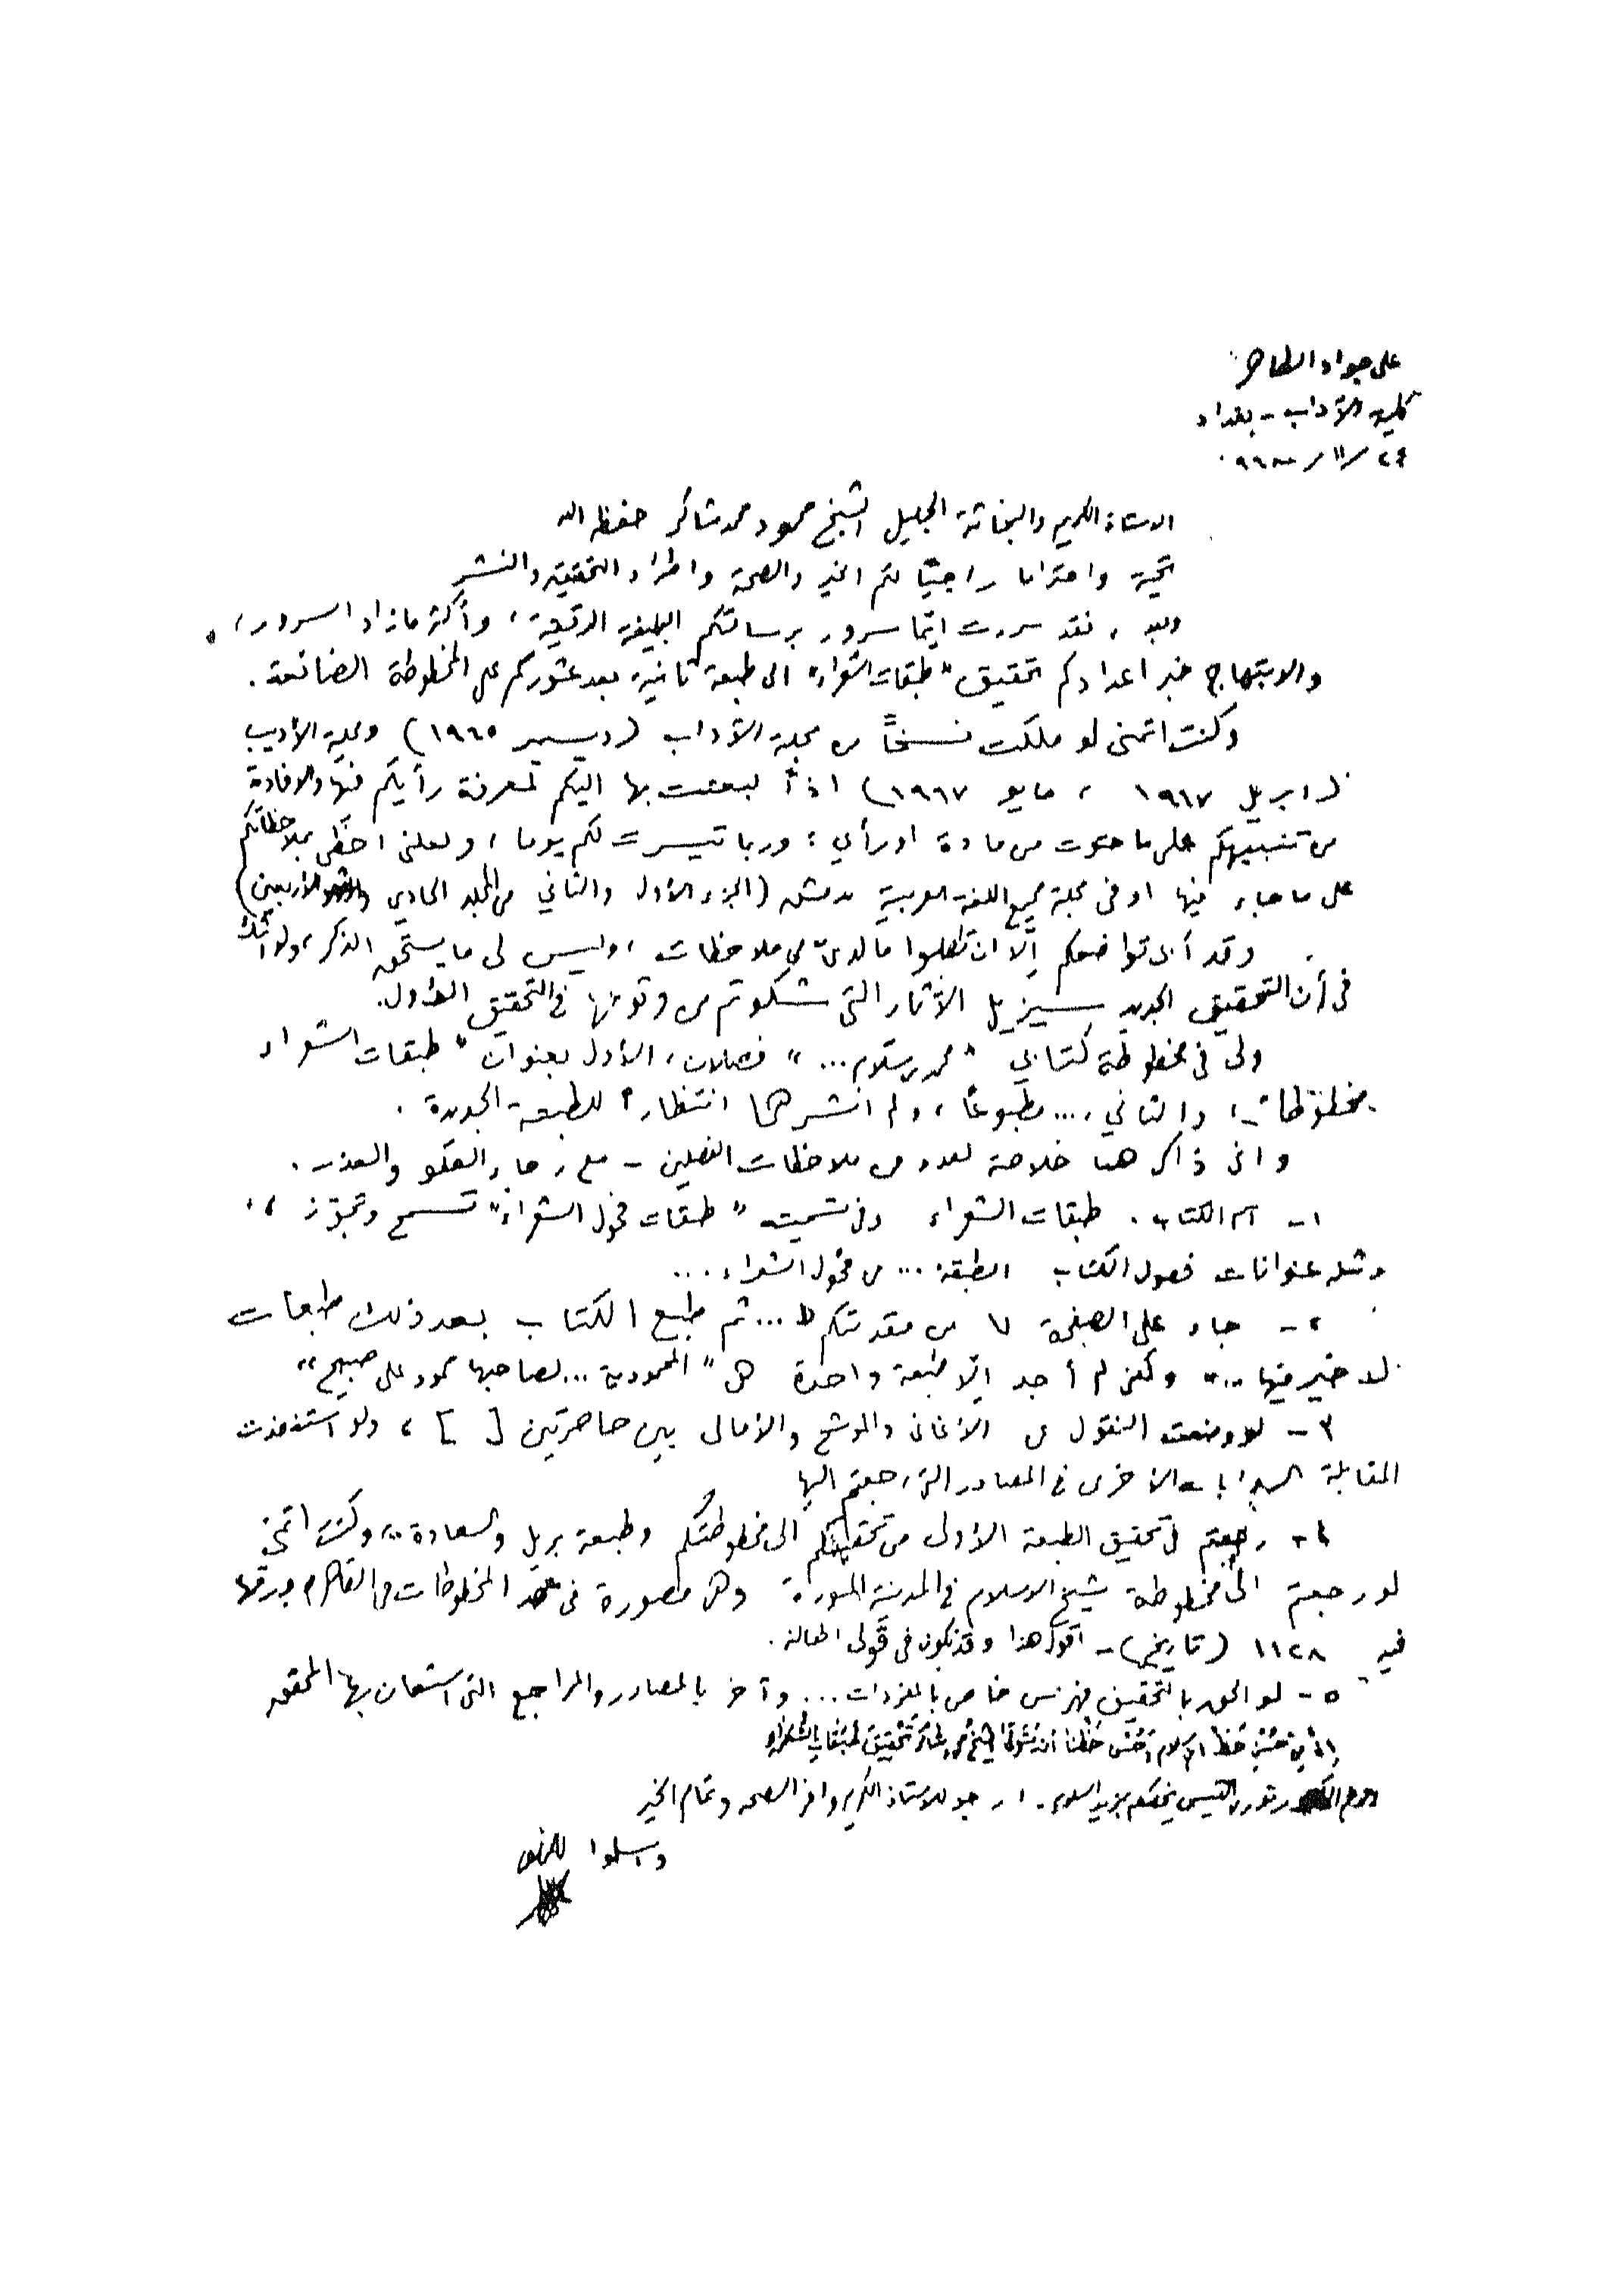 على جواد الطاهر
كلية الآداب - بغداد
٢٤ / ١١ / ٩٦٨
الاستاذ الكريم والبحاثة الجليل الشيخ محمود محمد شاكر حفظه الله
تحية واحتراما راجيًا لكم الخير والصحة واطراد التحقيق والنشر
وبعد ، فقد سررت ايّما سرور برسالتكم البليغة الرقيقة ، وأكثر ما زاد السرور ،
والابتهاج خبر اعدادكم تحقيق " طبقات الشعراء " الى طبعة ثانية بعد عثوركم على المخطوطة الضائعة .
وكنت اتمنى لو ملكت نسخاً من مجلة الآداب ( ديسمبر ١٩٦٥ ) ومجلة الأديب
( ابريل ١٩٦٧ ، مايو ١٩٦٧ ) اذاً لبعثت بها اليكم لمعرفة رأيكم فيها والافادة
من تنبيهكم على ما حوت من مادة او رأي ؛ وربما تيسرت لكم يوما ، ولعلني احظى بملاحظاتكم
على ما جاء فيها او في مجلة مجمع اللغة العربية بدمشق ( الجزء الأول والثاني من المجلد الحادي والأربعين )
وقد أبى تواضعكم إلّا ان تطلبوا ما لديّ من ملاحظات ، وليس لي ما يستحق الذكر ، ولا أشك
في أن التحقيق الجديد سيزيل الآثار التي شكوتم من وقوعها في التحقيق الأول .
ولى في مخطوطة كتابي " محمد بن سلام ... " فصلان ، الأول بعنوان " طبقات الشعراء
مخطوطات ، والثاني ، ... مطبوعاً ، ولم انشرهما انتظاراً للطبعة الجديدة .
واني ذاكر هنا خلاصة لعدد من ملاحظات الفصلين - مع رجاء العفو والعذر .
١ - اسم الكتاب . طبقات الشعراء وفي تسميته " طبقات فحول الشعراء " تسمح وتجوّز ،
ومثله عنوانات فصول الكتاب الطبقة ... من فحول الشعراء ...
٢ - جاء على الصفحة ٧ من مقدمتكم " ... ثم طبع الكتاب بعد ذلك طبعات
لا خير فيها ... " ولكني لم أجد إلّا طبعة واحدة هي " المحمودية ... لصاحبها محمود على صبيح "
٣ - لو وضعت النقول من الأغاني والموشح والأمالي بين حاصرتين [ ] ، ولو استنفدت
المقابلة الروايات الأخرى في المصادر التي رجعتم اليها
٤ - رجعتم في تحقيق الطبعة الأولى من تحقيقكم الى مخطوطتكم وطبعة بريل والسعادة .. ، وكنت اتمنى
لو رجعتم الى مخطوطة شيخ الاسلام في المدينة المنورة وهي مصورة في معهد المخطوطات في القاهرة ورقمها
فيه ١١٢٨ ( تاريخ ) - اقول هذا وقد يكون في قولى اطالة .
٥ - لو الحق بالتحقيق فهرس خاص بالمفردات ... وآخر بالمصادر والمراجع التي استعان بها المحقق
الشيخ محمود شاكر تحقيق طبقات الشعراء
نوري القيسي يخصكم بمزيد السلام . ارجو للاستاذ الكريم وافر الصحة وتمام الخير
واسلموا للمخلص